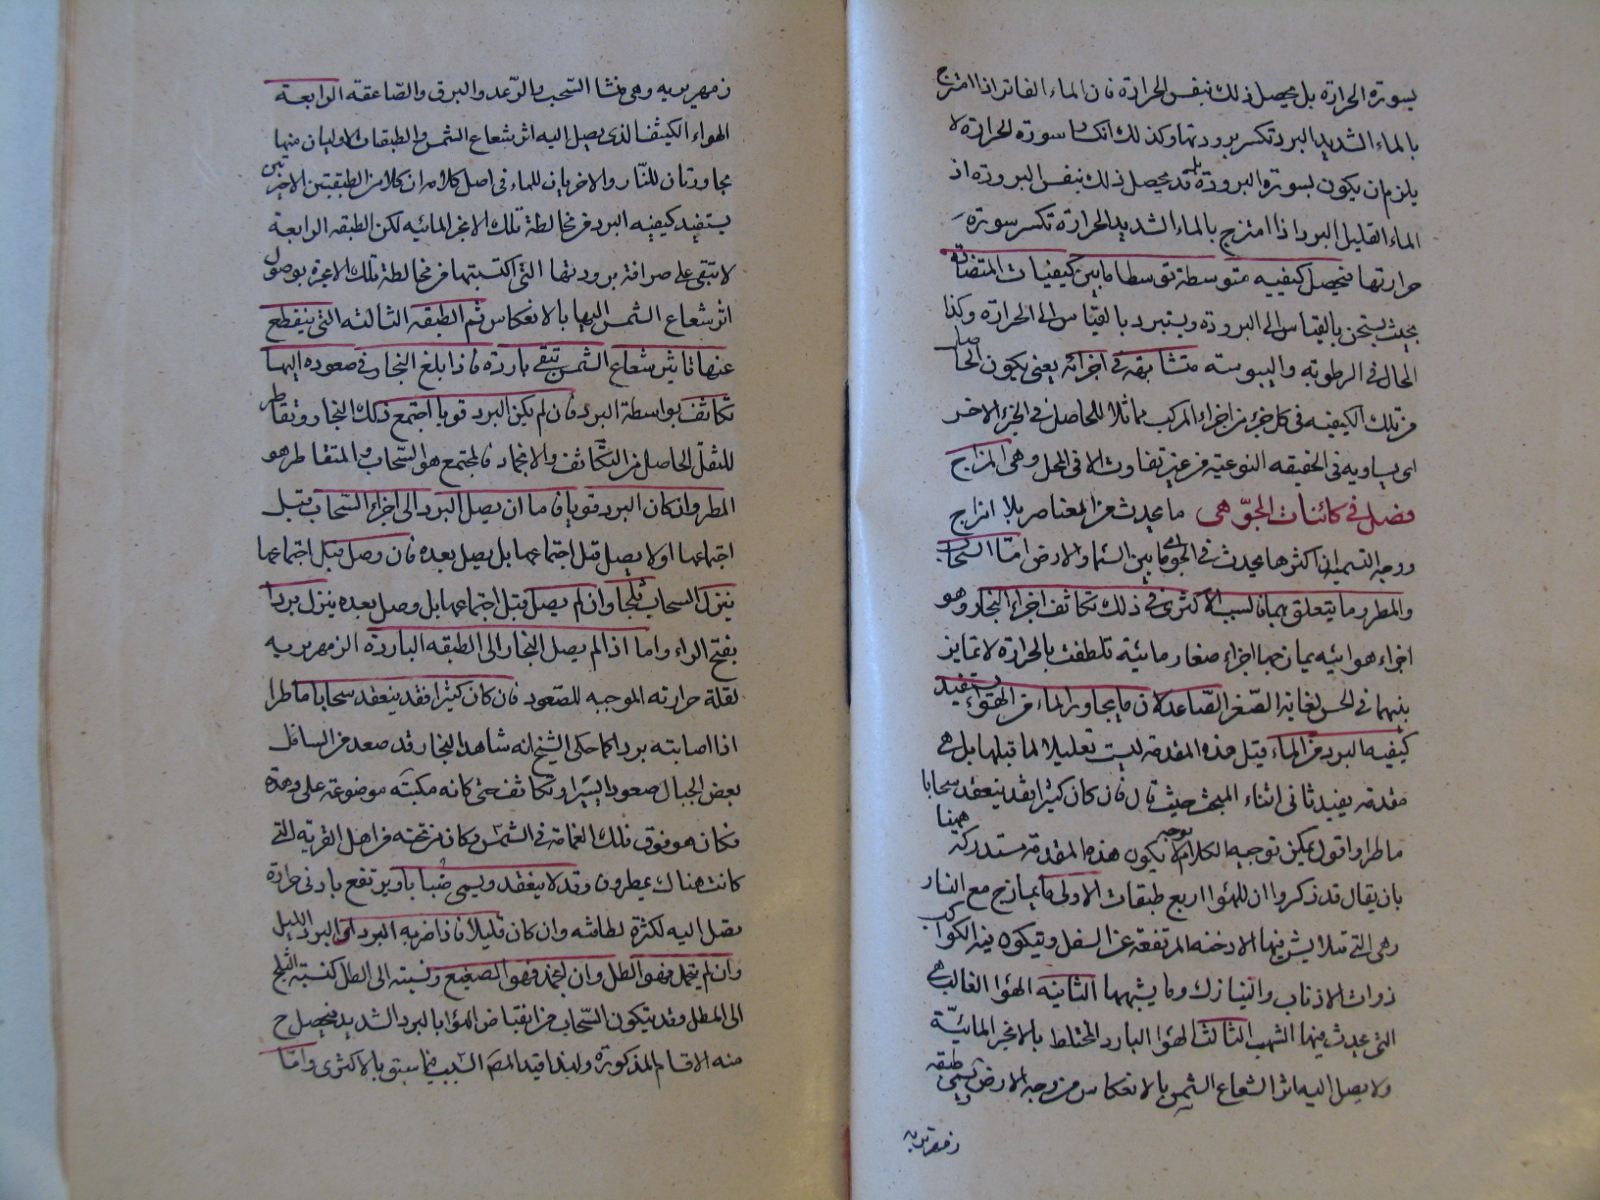 بسورة الحرارة بل يحصل ذلك بنفس الحرارة فان الماء الفاتر اذا امتزج
بالماء الشديد البرد تكسر برودتها وكذلك انكسار سورة الحرارة لا
يلزم ان يكون بسورة البرودة بل قد يحصل ذلك بنفس البرودة اذ
الماء القليل البرد اذا امتزج بالماء الشديد الحرارة تكسر سورة
حرارتها فيحصل كيفيه متوسطة توسطا ما بين كيفيات المتضادة
بحيث يستخن بالقياس الى البرودة ويستبرد بالقياس الى الحرارة وكذا
الحال في الرطوبه واليبوسته متشابهه في اجزائه يعنى يكون الحاصل
من تلك الكيفيه في كل جزء من اجزاء المركب مماثلا للحاصل في الجزء الاخر
اى يساويه في الحقيقه النوعيه من غير تفاوت الا في المحل وهى المزاج
فصل في كائنات الجوّ هى ما يحدث من العناصر بلا مزاج
ووجه التسميه ان اكثرها يحدث في الجو اى ما بين السماء والارض امّا السحاب
والمطر وما يتعلق بهما فالسبب الاكثرى في ذلك تكاثف اجزاء البخار وهو
اجزاء هوائيه يمازجها اجزاء صغار مائيّه تلطفت بالحرارة لا تمايز
بينهما في الحس لغاية الصّغر الصّاعد لان ما يجاور الماء من الهواء يستفيد
كيفيه البرد من الماء قيل هذه المقدمة ليست تعليلا لما قبلها بل هى
مقدمه يفيد ثانى اثناء المبحث حيث قال فان كان كثيرا فقد ينعقد سحابا
ماطرا واقول يمكن توجيه الكلام بوجه لا يكون هذه المقدمة مستدركة ههنا
بان يقال قد ذكروا ان للهواء اربع طبقات الاولى ما يمازج مع النار
وهى التى تتلاشى فيها الادخنه المرتفعة عن السفل ويتكون فيه الكواكب
ذوات الاذناب والنيازك وما يشبهها الثانيه الهواء الغالب هى
التى يحدث فيها الشهب الثالث الهواء البارد المختلط بالابخرة المائيّة
ولا يصل اليه اثر الشعاع الشمس بالانعكاس من وجه الارض ويسمى طبقه
زمهريريه
زمهريريه وهى منشا السّحب والرّعد والبرق والصّاعقه الرابعة
الهواء الكيثف الذى يصل اليه اثر شعاع الشمس والطبقات الاوليان منها
مجاورتان للنّار والاخريان للماء في اصل كلامه ان كلا من الطبقتين الاخيرتين
يستفيد كيفيه البرد من مخالطة تلك الابخرة المائيه لكن الطبقه الرابعة
لا تبقى على صرافة برودتها التى اكتسبتها من مخالطة تلك الابخرة بوصول
اثر شعاع الشمس اليها بالانعكاس ثم الطبقه الثالثه التى ينقطع
عنها تاثير شعاع الشمس تبقى باردة فاذا بلغ البخار في صعوده اليها
تكاثف بواسطة البرد فان لم يكن البرد قويا اجتمع ذلك البخار وتقاطر
للثقل الحاصل من التكاثف والانجماد فالمجتمع هو السّحاب والمتقاطر هو
المطر وان كان البرد قويا فاما ان يصل البرد الى اجزاء السّحاب قبل
اجتماعها او لا يصل قبل اجتماعها بل يصل بعده فان وصل قبل اجتماعها
ينزل السحاب ثلجا وان لم يصل قبل اجتماعها بل وصل بعده ينزل بردا
بفتح الراء واما اذا لم يصل البخار الى الطبقه الباردة الزمهريريه
لقلة حرارته الموجبه للصّعود فان كان كثيرا فقد ينعقد سحابا ماطرا
اذا اصابته برد كما حكى الشيخ انه شاهد البخار قد صعد من اسافل
بعض الجبال صعودا يسيرا وتكاثف حتى كانه مكبّه موضوعة على وهدة
فكان هو فوق تلك الغمامة في الشمس وكان من تحته من اهل القريه التى
كانت هناك يمطرون وقد لا ينعقد ويسمى ضبابا ويرتفع بادنى حرارة
يصل اليه لكثرة لطافته وان كان قليلا فاذا ضربه البرد اى البرد الليل
وان لم ينجمد فهو الطل وان انجمد فهو الصقيع ونسبته الى الطل كنسبة الثلج
الى المطر وقد يتكون السّحاب من انقباض الهواء بالبرد الشديد فيحصل ح
منه الاقسام المذكورة ولهذا قيد المصّ السّبب فيما سبق بالاكثرى وامّا